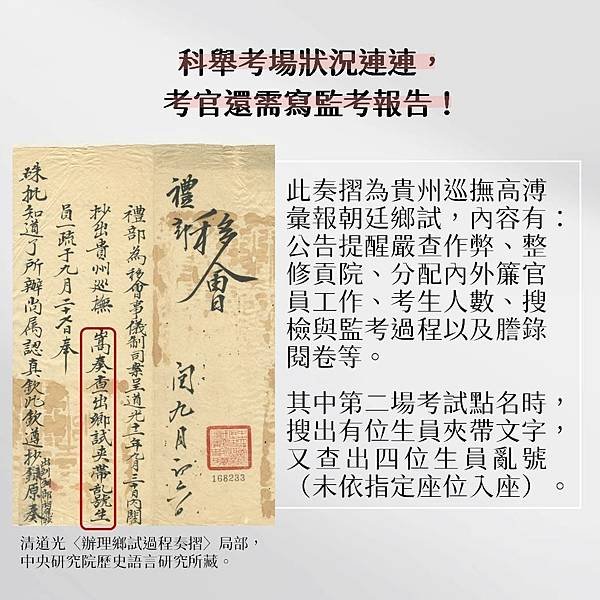 科舉考場狀況連連，
考官還需寫監考報告！
禮部
移會
閏九月
168233
禮部為移會事儀制司案呈道光十二年九月三十日內閣
抄出貴州巡撫 嵩奏查出鄉試夾帶亂號生
員一疏于九月二十七日奉
硃批知道了所辦尚屬認真欽此欽遵抄錄原奏
此奏摺為貴州巡撫高溥
彙報朝廷鄉試，內容有：
公告提醒嚴查作弊、整
修貢院、分配內外簾官
員工作、考生人數、搜
檢與監考過程以及謄錄
閱卷等。
其中第二場考試點名時，
搜出有位生員夾帶文字，
又查出四位生員亂號
（未依指定座位入座）。
清道光〈辦理鄉試過程奏摺〉局部，
中央研究院歷史語言研究所藏。